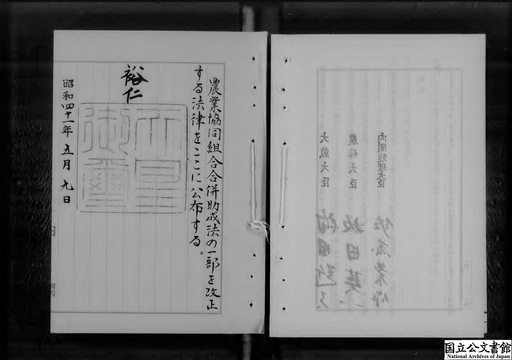 農業協同組合合併助成法の一部を改正
する法律をここに公布する。
裕仁
天皇
御璽
昭和四十一年五月九日
内閣総理大臣
農林大臣
大蔵大臣
国立公文書館
National Archives of Japan